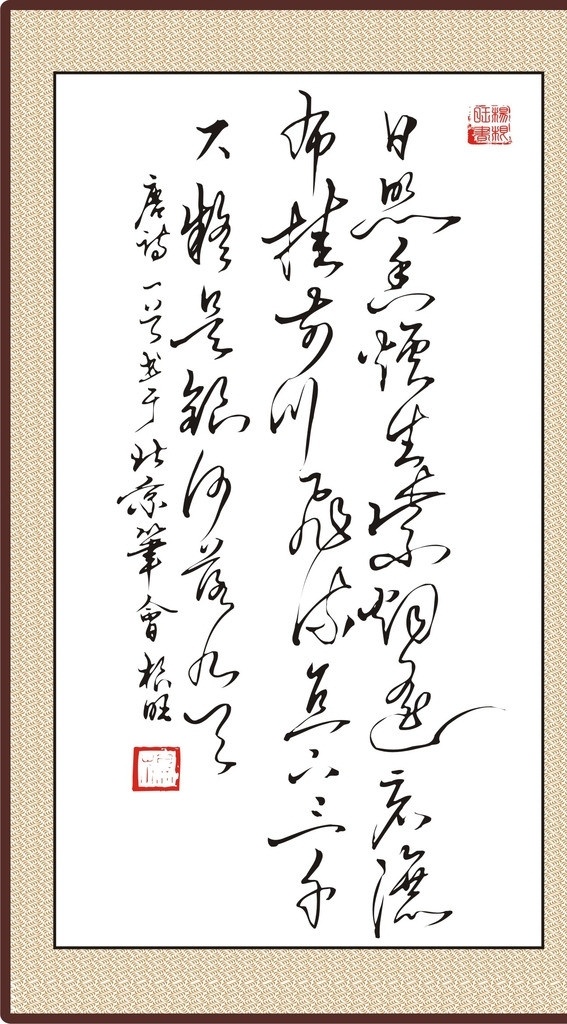 楊根旺書
日照香爐生紫烟遥看瀑
布挂前川飛流直下三千
尺疑是銀河落九天
唐詩一首书于北京筆會根旺